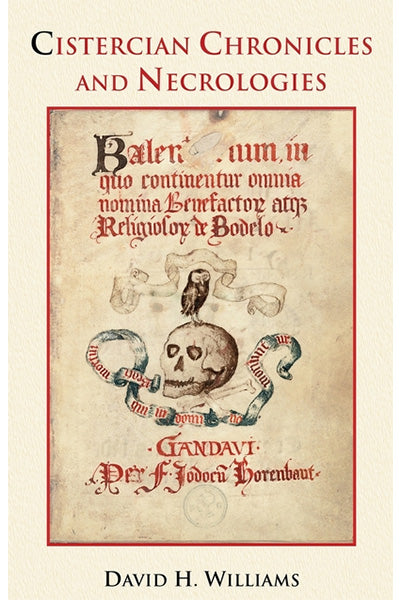 CISTERCIAN CHRONICLES
AND NECROLOGIES
in
quo continentur omnia
nomina Benefactoꝝ atqꝫ
Religiosoꝝ de Bodelo
qui in domi
·GANDAVI·
Per F. Jodocū Horenbaut·
DAVID H. WILLIAMS